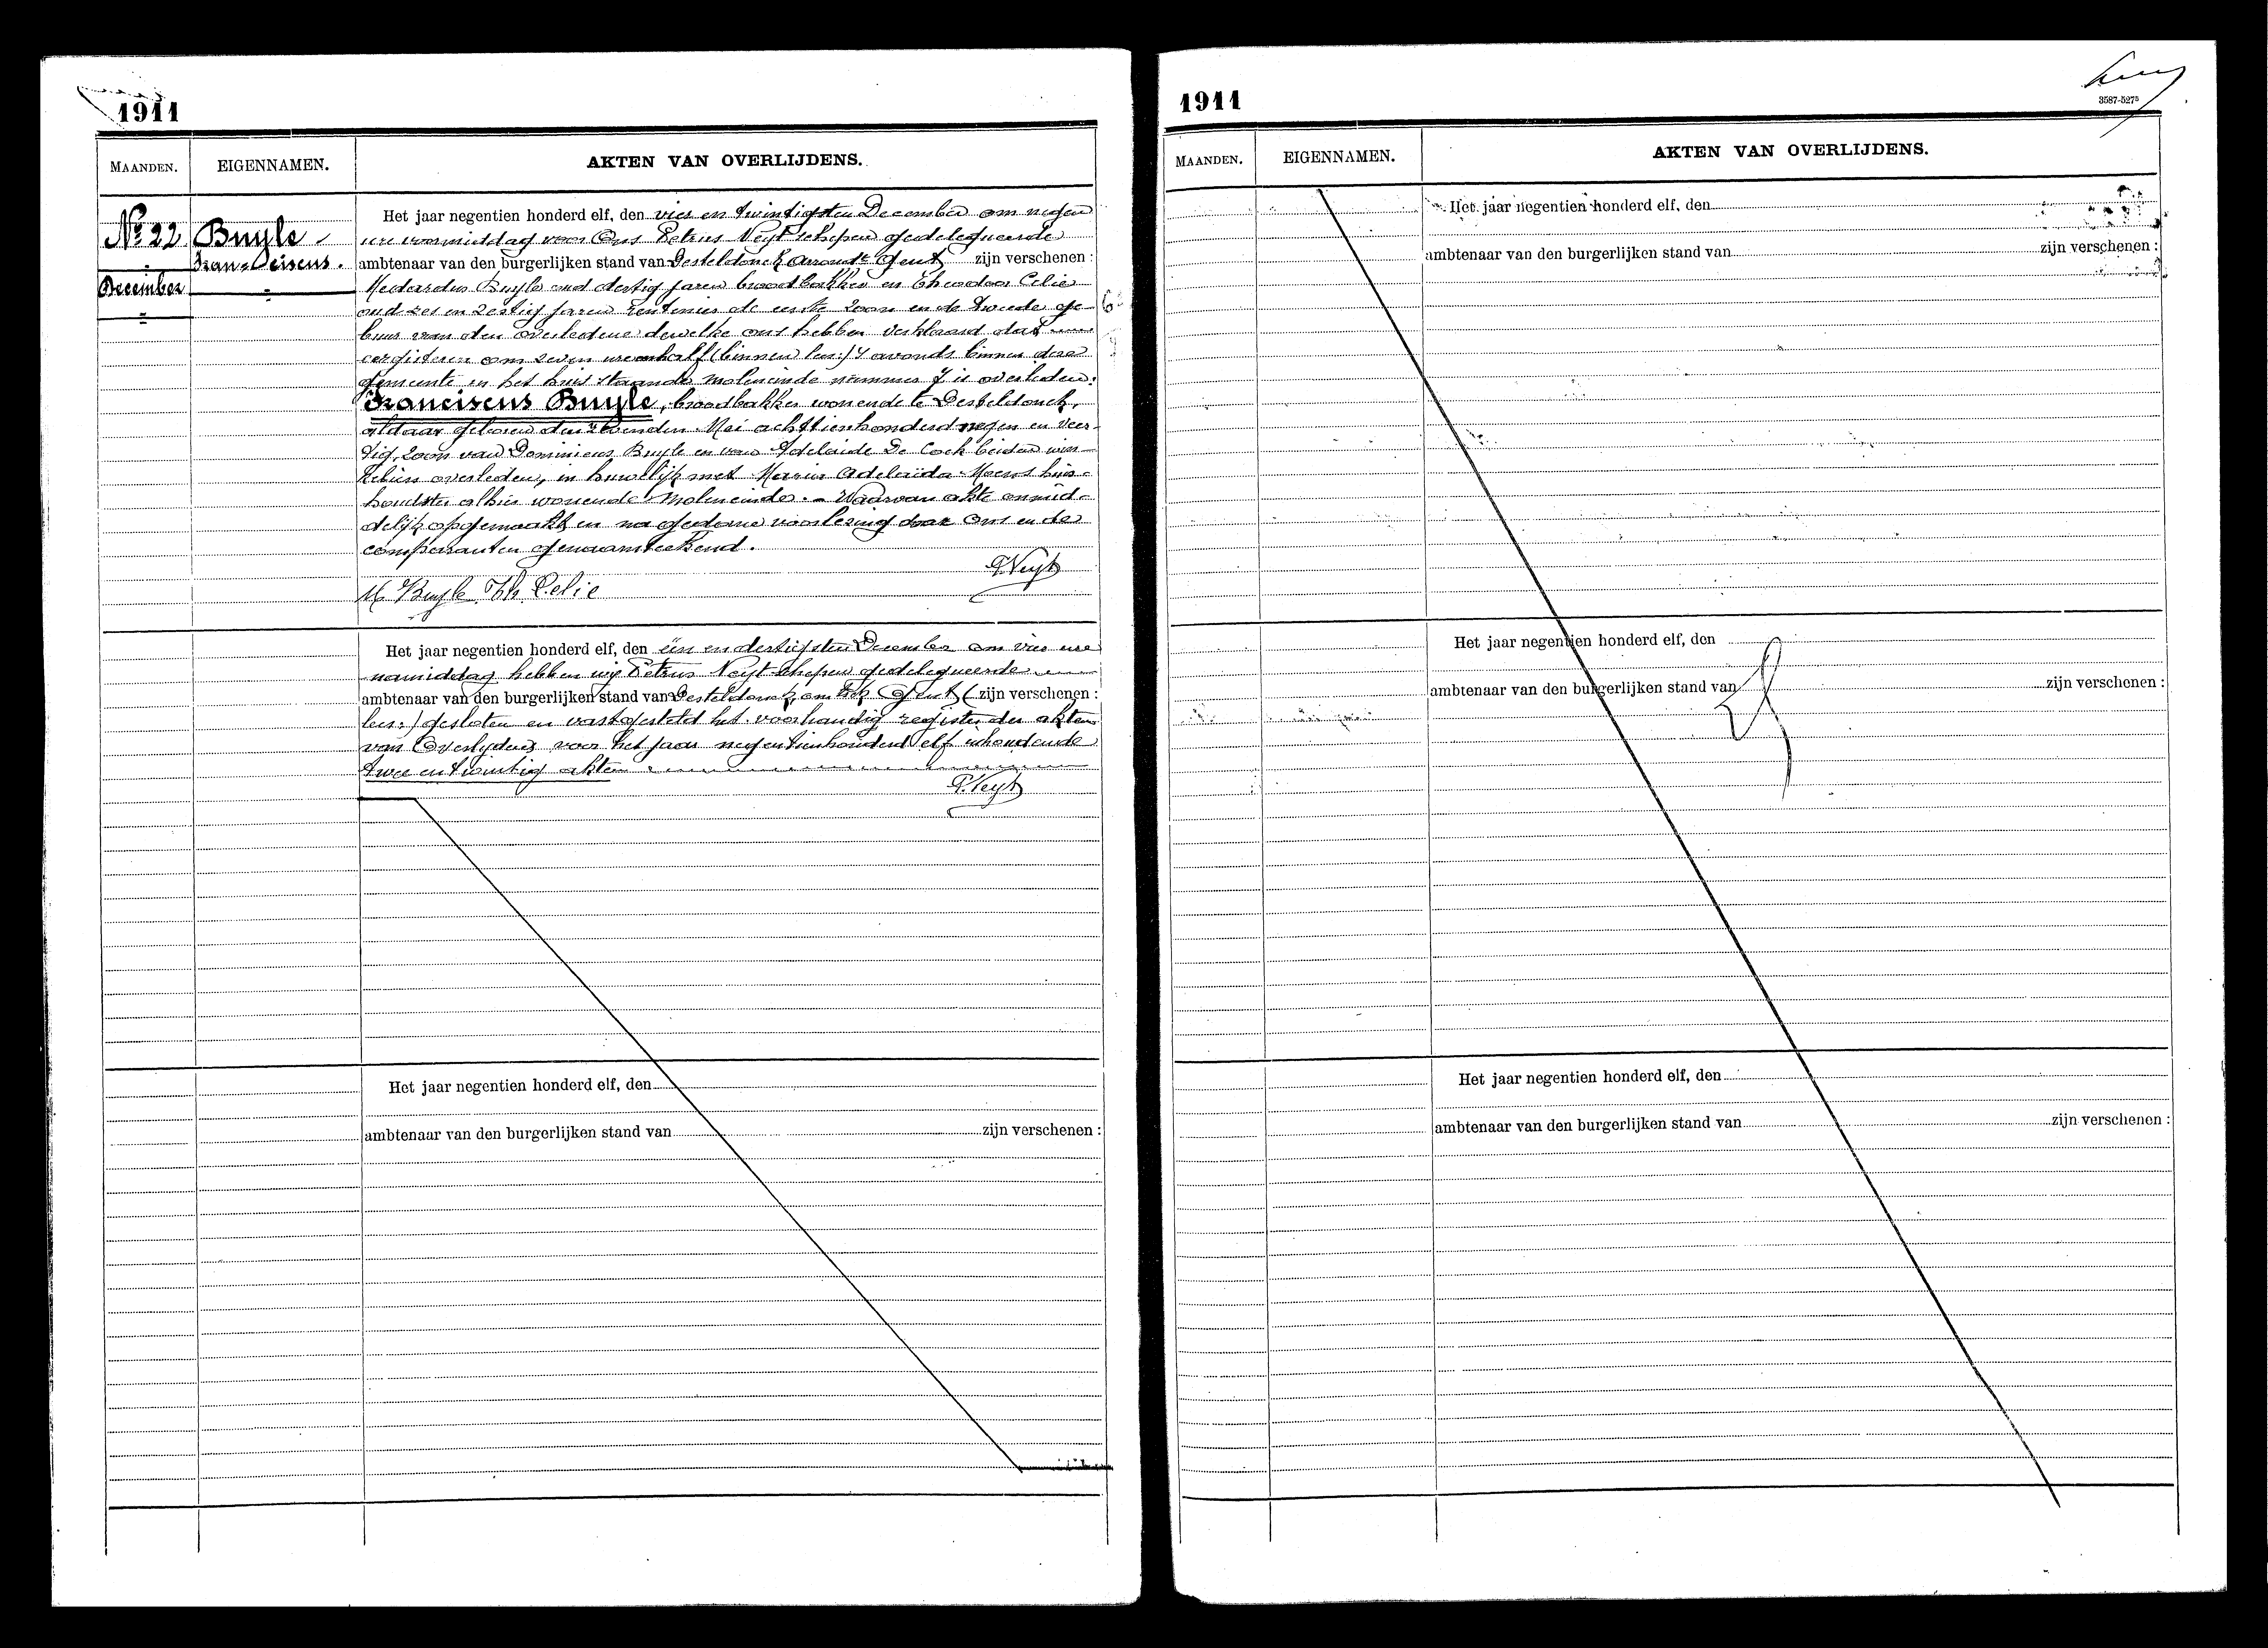 1911
MAANDEN. EIGENNAMEN. AKTEN VAN OVERLIJDENS.
Nº 22
December
Buyle
Franciscus.
Het jaar negentien honderd elf, den vier en twintigsten December om negen
ure voormiddag voor Ons Petrus Neyt schepen gedelegueerde
ambtenaar van den burgerlijken stand van Desteldonck Arrondt Gent zijn verschenen :
Medardus Buyle oud dertig jaren broodbakker en Theodoor Celie
oud zes en zestig jaren rentenier de eerste zoon en de tweede ge-
buur van den overledene dewelke ons hebben verklaard dat
eergisteren om zeven ure en half (binnen lees:) 's avonds binnen deze
gemeente in het huis staande Moleneinde nummer 7 is overleden:
Franciscus Buyle, broodbakker wonende te Desteldonck,
aldaar geboren den Mei achttienhonderd negen en veer-
tig, zoon van Dominicus Buyle en van Adelaide De Cock beiden
alhier overleden, in huwelijk met Maria Adelaïda Moens huis-
houdster alhier wonende Moleneinde. - Waarvan akte onmid-
delijk opgemaakt en na gedane voorlezing door Ons en de
comparanten genaamteekend.
P. Neyt
M. Buyle Th. Celie
Het jaar negentien honderd elf, den een en dertigsten December om vier ure
namiddag hebben wij Petrus Neyt schepen gedelegueerde
ambtenaar van den burgerlijken stand van Desteldonck Gent ( zijn verschenen :
lees:) gesloten en vastgesteld het voorhandig register der akten
van Overlijdens voor het jaar negentienhonderd elf inhoudende
twee en twintig akten.
P. Neyt
Het jaar negentien honderd elf, den
ambtenaar van den burgerlijken stand van zijn verschenen :
1911
3587-5275
MAANDEN. EIGENNAMEN. AKTEN VAN OVERLIJDENS.
Het jaar negentien honderd elf, den
ambtenaar van den burgerlijken stand van zijn verschenen :
Het jaar negentien honderd elf, den
ambtenaar van den burgerlijken stand van zijn verschenen :
Het jaar negentien honderd elf, den
ambtenaar van den burgerlijken stand van zijn verschenen :